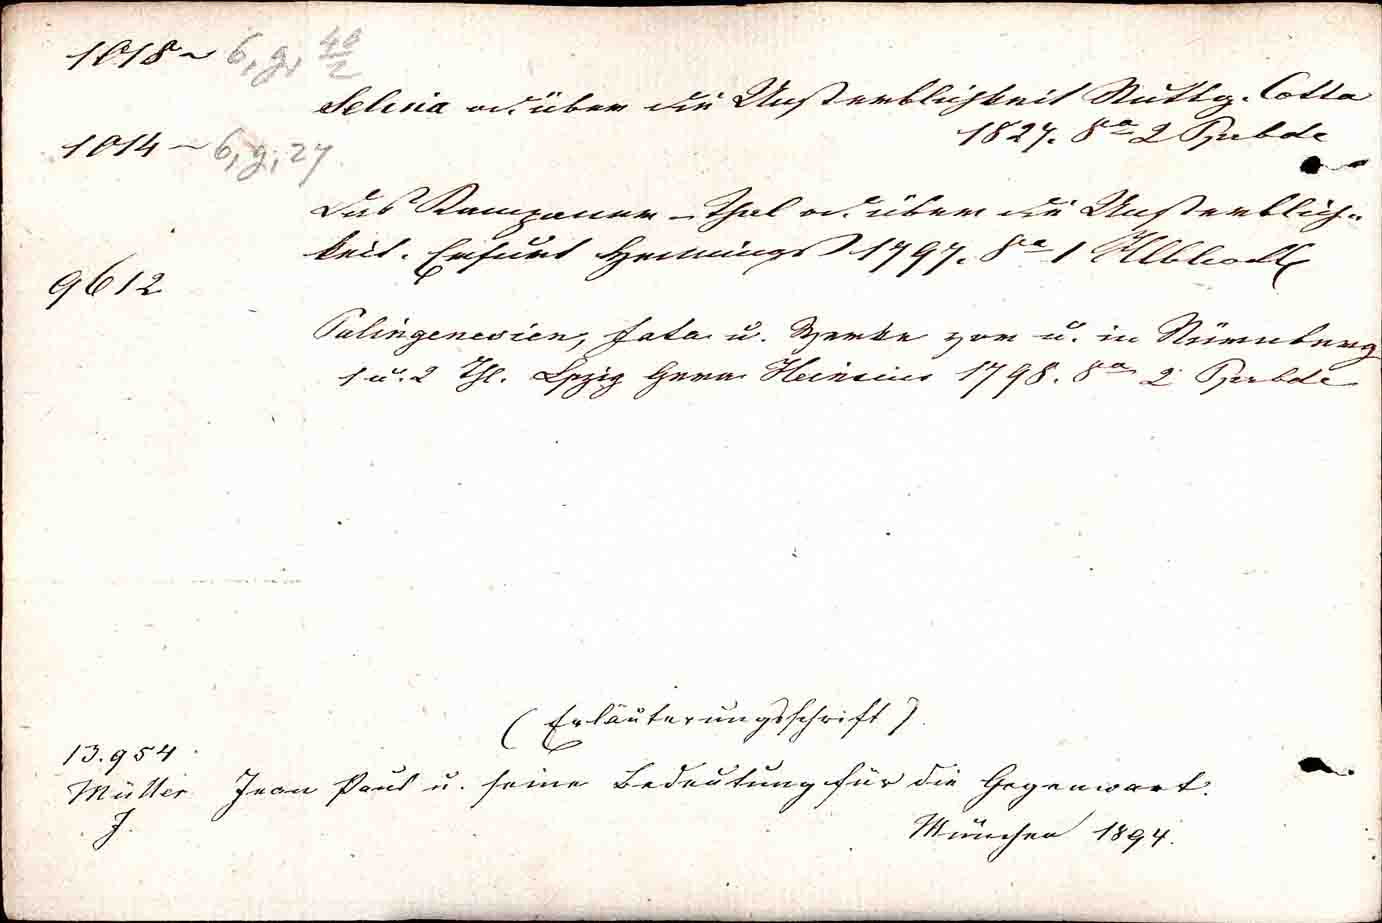 1018 ~ 6, g, 40/2
Selina od. über die Unsterblichkeit Stuttg. Cotta
1827. 8º 2 Ppbde
1014 ~ 6, g, 27
Das Kampaner-Thal od. über die Unsterblich-
keit. Erfurt Hennings 1797. 8º 1
9612
Palingenesien, Fata u. Werke vor u. in Nürnberg
1 u. 2 Thl. Lpzig Gera Heinsius 1798. 8º 2 Ppbde
(Erläuterungsschrift).
13.954
Müller Jean Paul u. seine Bedeutung für die Gegenwart.
J.
München 1894.